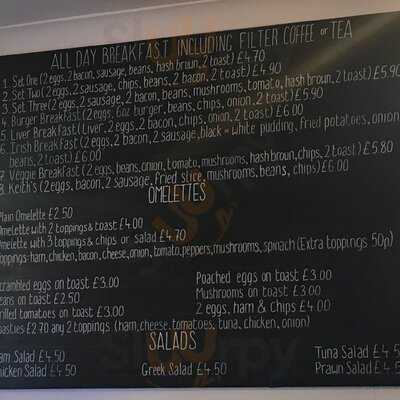 ALL DAY BREAKFAST INCLUDING FILTER COFFEE or TEA
1. Set One (2 eggs, 2 bacon, sausage, beans, hash brown, 2 toast) £4.70
2. Set Two (2 eggs, 2 sausage, chips, beans, 2 bacon, 2 toast) £4.90
3. Set Three (2 eggs, 2 sausage, 2 bacon, beans, mushrooms, tomato, hash brown, 2 toast) £5.90
4 Burger Breakfast (2 eggs, 6oz burger, beans, chips, onion, 2 toast) £5.90
5 Liver Breakfast (Liver, 2 eggs, 2 bacon, chips, onion, 2 toast) £6.00
6 Irish Breakfast (2 eggs, 2 bacon, 2 sausage, black + white pudding, fried potatoes, onion
beans, 2 toast) £6.00
7 Veggie Breakfast (2 eggs, beans, onion, tomato, mushrooms, hash brown, chips, 2 toast) £5.80
8. Keith's (2 eggs, bacon, 2 sausage, fried slice, mushrooms, beans, chips) £6.00
OMELETTES
Plain Omelette £2.50
Omelette with 2 toppings & toast £4.00
Omelette with 3 toppings & chips or salad £4.70
toppings- ham, chicken, bacon, cheese, onion, tomato, peppers, mushrooms, spinach (Extra toppings 50p)
scrambled eggs on toast £3.00 Poached eggs on toast £3.00
Beans on toast £2.50 Mushrooms on toast £3.00
Grilled tomatoes on toast £3.00 2 eggs, ham & chips £4.00
Toasties £2.70 any 2 toppings (ham, cheese, tomatoes, tuna, chicken, onion)
SALADS
Ham Salad £4.50 Tuna Salad £4.5
Chicken Salad £4.50 Greek Salad £4.50 Prawn Salad £4.5